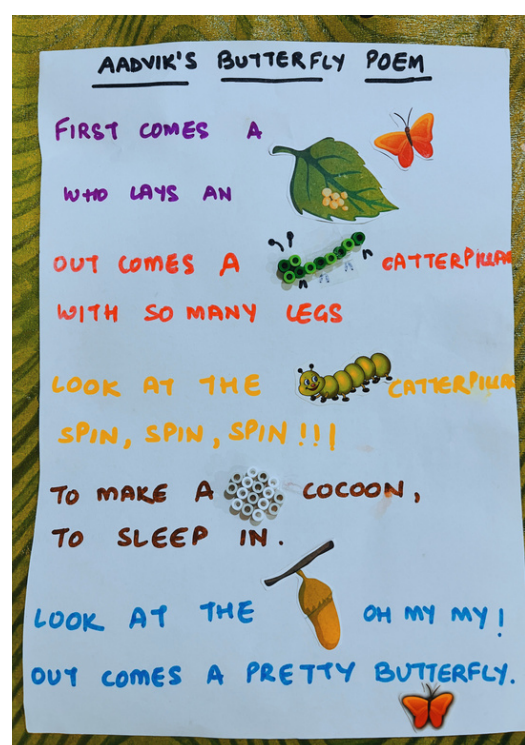 AADVIK'S BUTTERFLY POEM
FIRST COMES A
WHO LAYS AN
OUT COMES A CATTERPILLAR
WITH SO MANY LEGS
LOOK AT THE CATTERPILLAR
SPIN, SPIN, SPIN!!!
TO MAKE A COCOON,
TO SLEEP IN.
LOOK AT THE OH MY MY!
OUT COMES A PRETTY BUTTERFLY.